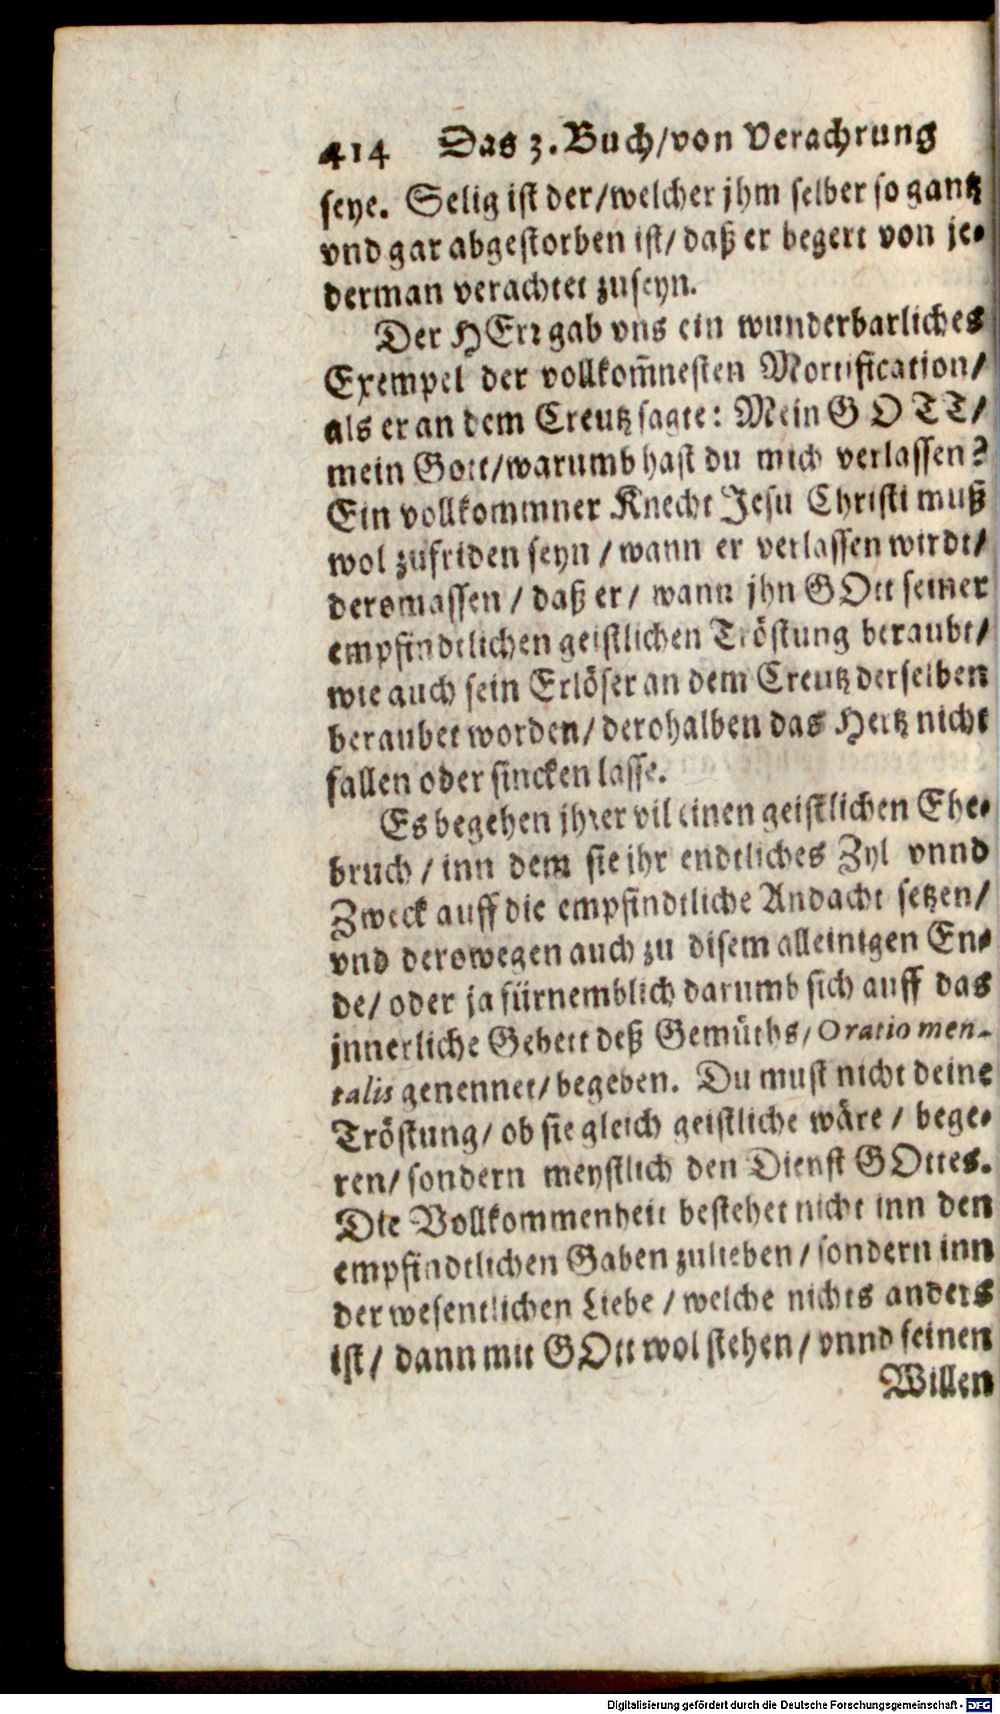 414 Das 3. Buch/von Verachrung
seye. Selig ist der/welcher jhm selber so gantz
vnd gar abgestorben ist/ daß er begert von je-
derman verachtet zuseyn.
Der HErr gab vns ein wunderbarliches
Exempel der vollkom̃nesten Mortification/
als er an dem Creutz sagte: Mein GOTT/
mein Gott/warumb hast du mich verlassen?
Ein vollkommner Knecht Jesu Christi muß
wol zufriden seyn / wann er verlassen wirdt/
dermassen / daß er / wann jhn GOtt seiner
empfindtlichen geistlichen Tröstung beraubt/
wie auch sein Erlöser an dem Creutz derselben
beraubet worden/ derohalben das Hertz nicht
fallen oder sincken lasse.
Es begehen jhrer vil einen geistlichen Ehe-
bruch / inn dem sie ihr endtliches Zyl vnnd
Zweck auff die empfindtliche Andacht setzen/
vnd derowegen auch zu disem alleinigen En-
de/ oder ja fürnemblich darumb sich auff das
jnnerliche Gebett deß Gemüths/ Oratio men-
talis genennet/ begeben. Du must nicht deine
Tröstung/ ob sie gleich geistliche wäre / bege-
ren/ sondern meystlich den Dienst GOttes.
Die Vollkommenheit bestehet nicht inn den
empfindtlichen Gaben zulieben / sondern inn
der wesentlichen Liebe / welche nichts anders
ist / dann mit GOtt wol stehen / vnnd seinen
Willen
Digitalisierung gefördert durch die Deutsche Forschungsgemeinschaft - DFG